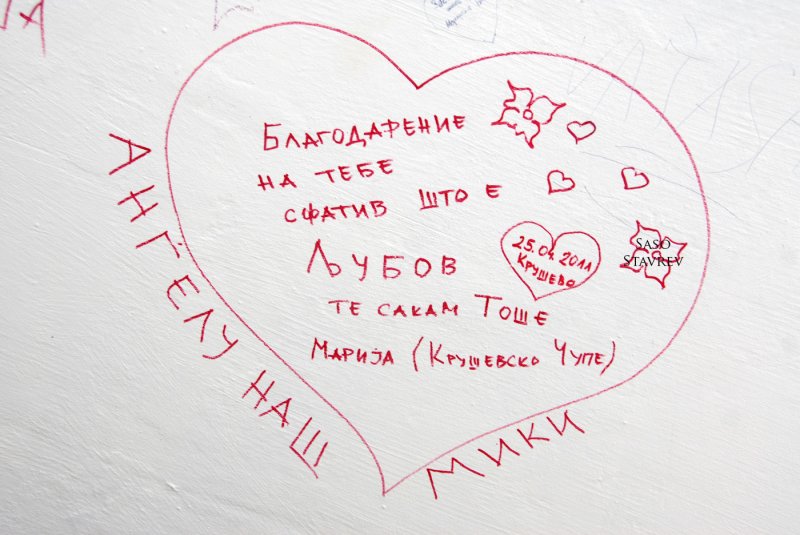 Благодарение
на тебе
сфатив што е
Љубов
25.04.2011
Крушево
Saso
Stavrev
те сакам Тоше
Марија (Крушевско Чупе)
АНЃЕЛУ НАШ
МИКИ